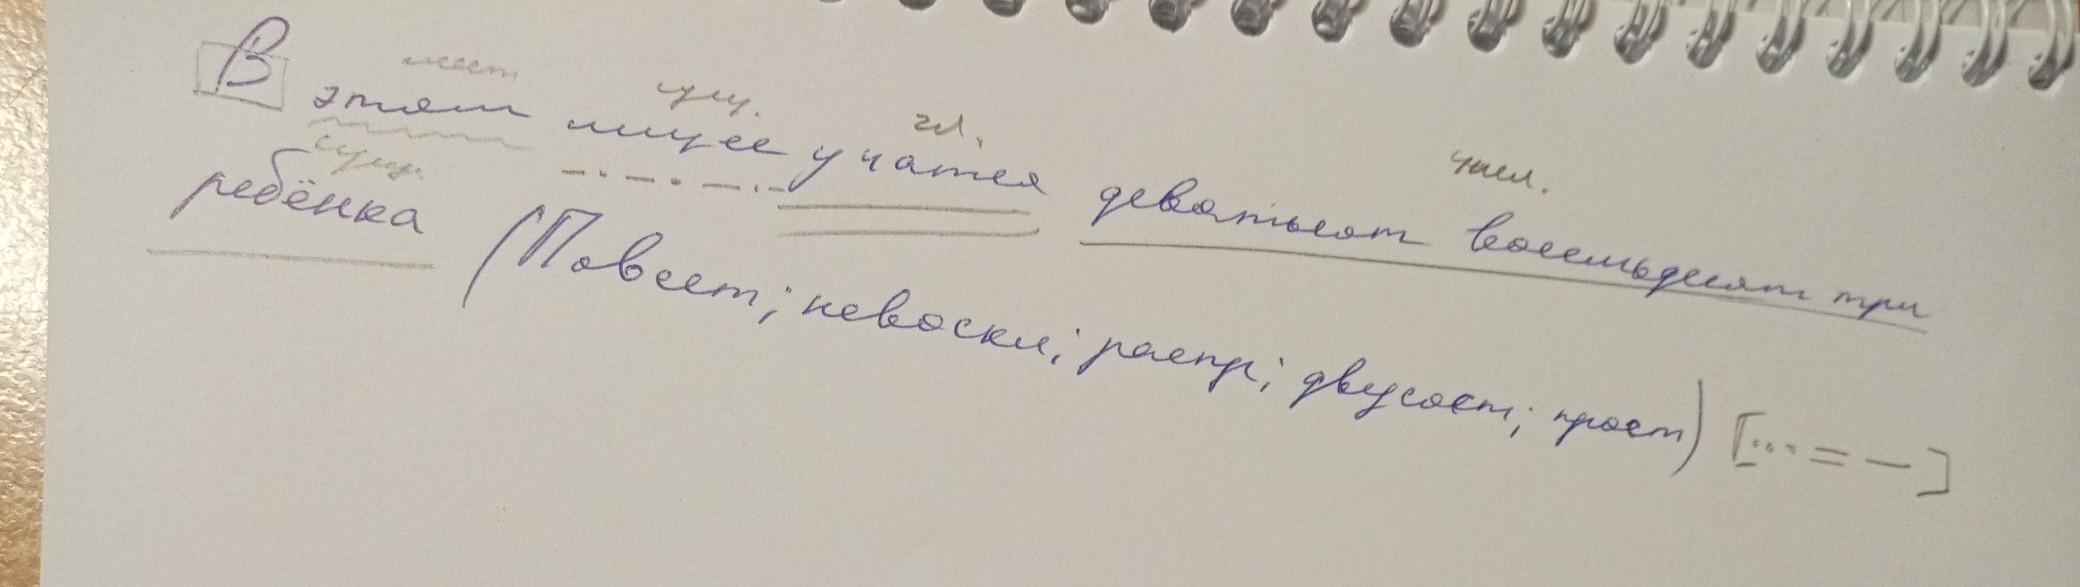 мест сущ. гл. числ.
В этом лицее учатся девятьсот восемьдесят три
сущ.
ребёнка (Повест; невоскл; распр; двусост; прост) [... = —]